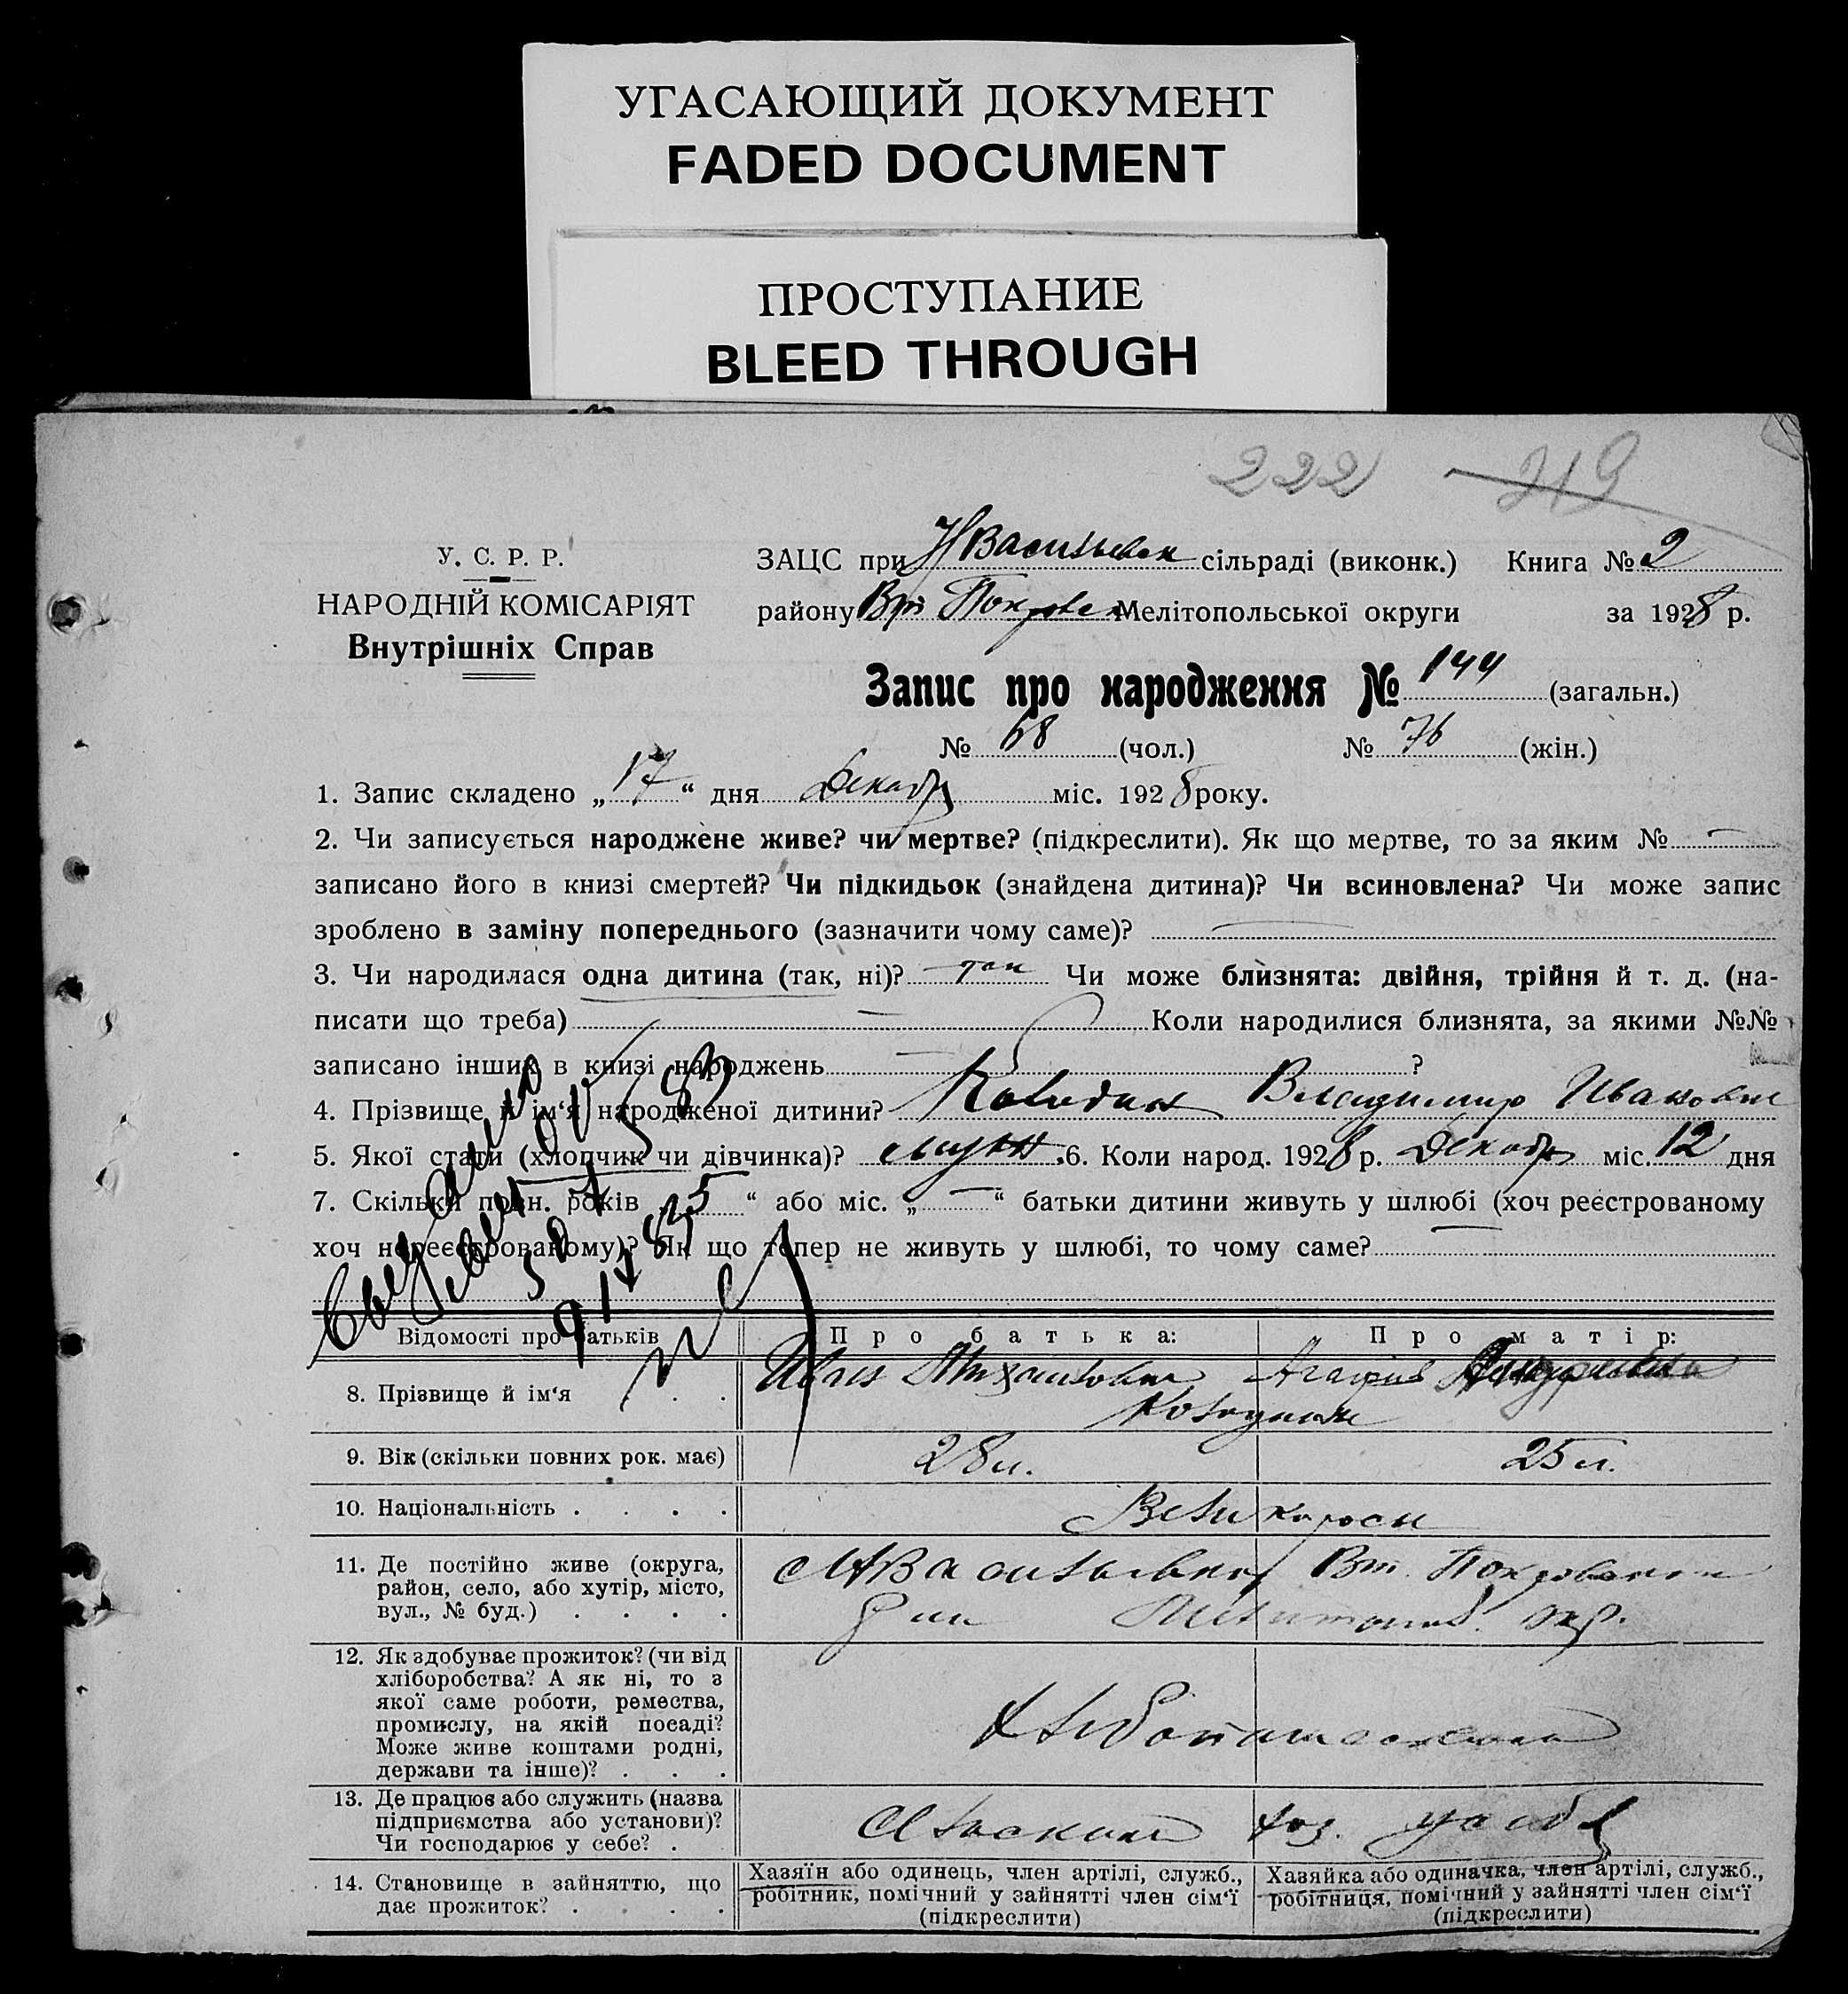 УГАСАЮЩИЙ ДОКУМЕНТ
FADED DOCUMENT
ПРОСТУПАНИЕ
BLEED THROUGH
222 219
У. С. Р. Р.
НАРОДНІЙ КОМІСАРІЯТ
Внутрішніх Справ
ЗАЦС при Н Васильевск сільраді (виконк.) Книга № 2
району Вт Покровск Мелітопольської округи за 1928 р.
Запис про народження № 144 (загальн.)
№ 68 (чол.) № 76 (жін.)
1. Запис складено „17“ дня Декабр міс. 1928 року.
2. Чи записується народжене живе? чи мертве? (підкреслити). Як що мертве, то за яким № —
записано його в книзі смертей? Чи підкидьок (знайдена дитина)? Чи всиновлена? Чи може запис
зроблено в заміну попереднього (зазначити чому саме)? —
3. Чи народилася одна дитина (так, ні)? так Чи може близнята: двійня, трійня й т. д. (на-
писати що треба) — Коли народилися близнята, за якими №№
записано інших в книзі народжень — ?
4. Прізвище й ім‘я народженої дитини? Владимир Иванович
5. Якої стати (хлопчик чи дівчинка)? мужск. 6. Коли народ. 1928 р. Декабр міс. 12 дня
7. Скільки повн. років 5 “ або міс. „ — “ батьки дитини живуть у шлюбі (хоч реєстрованому
хоч нереєстрованому)? Як що тепер не живуть у шлюбі, то чому саме? —
Відомості про батьків
Про батька:
Про матір:
8. Прізвище й ім‘я . . .
Иван Михайлович
Агафия
9. Вік (скільки повних рок. має)
28 л.
25 л.
10. Національність . . . .
Великороси
11. Де постійно живе (округа,
район, село, або хутір, місто,
вул., № буд.) . . . .
Васильевка Вт. Покровский
р-н Мелитопол. окр.
12. Як здобуває прожиток? (чи від
хліборобства? А як ні, то з
якої саме роботи, ремества,
промислу, на якій посаді?
Може живе коштами родні,
держави та інше)? . . .
хлібопашество
13. Де працює або служить (назва
підприємства або установи)?
Чи господарює у себе? .
сельским хоз. у себя
14. Становище в зайняттю, що
дає прожиток? . . . .
Хазяїн або одинець, член артілі, служб.,
робітник, помічний у зайнятті член сім‘ї
(підкреслити)
Хазяйка або одиначка, член артілі, служб.,
робітниця, помічний у зайнятті член сім‘ї
(підкреслити)